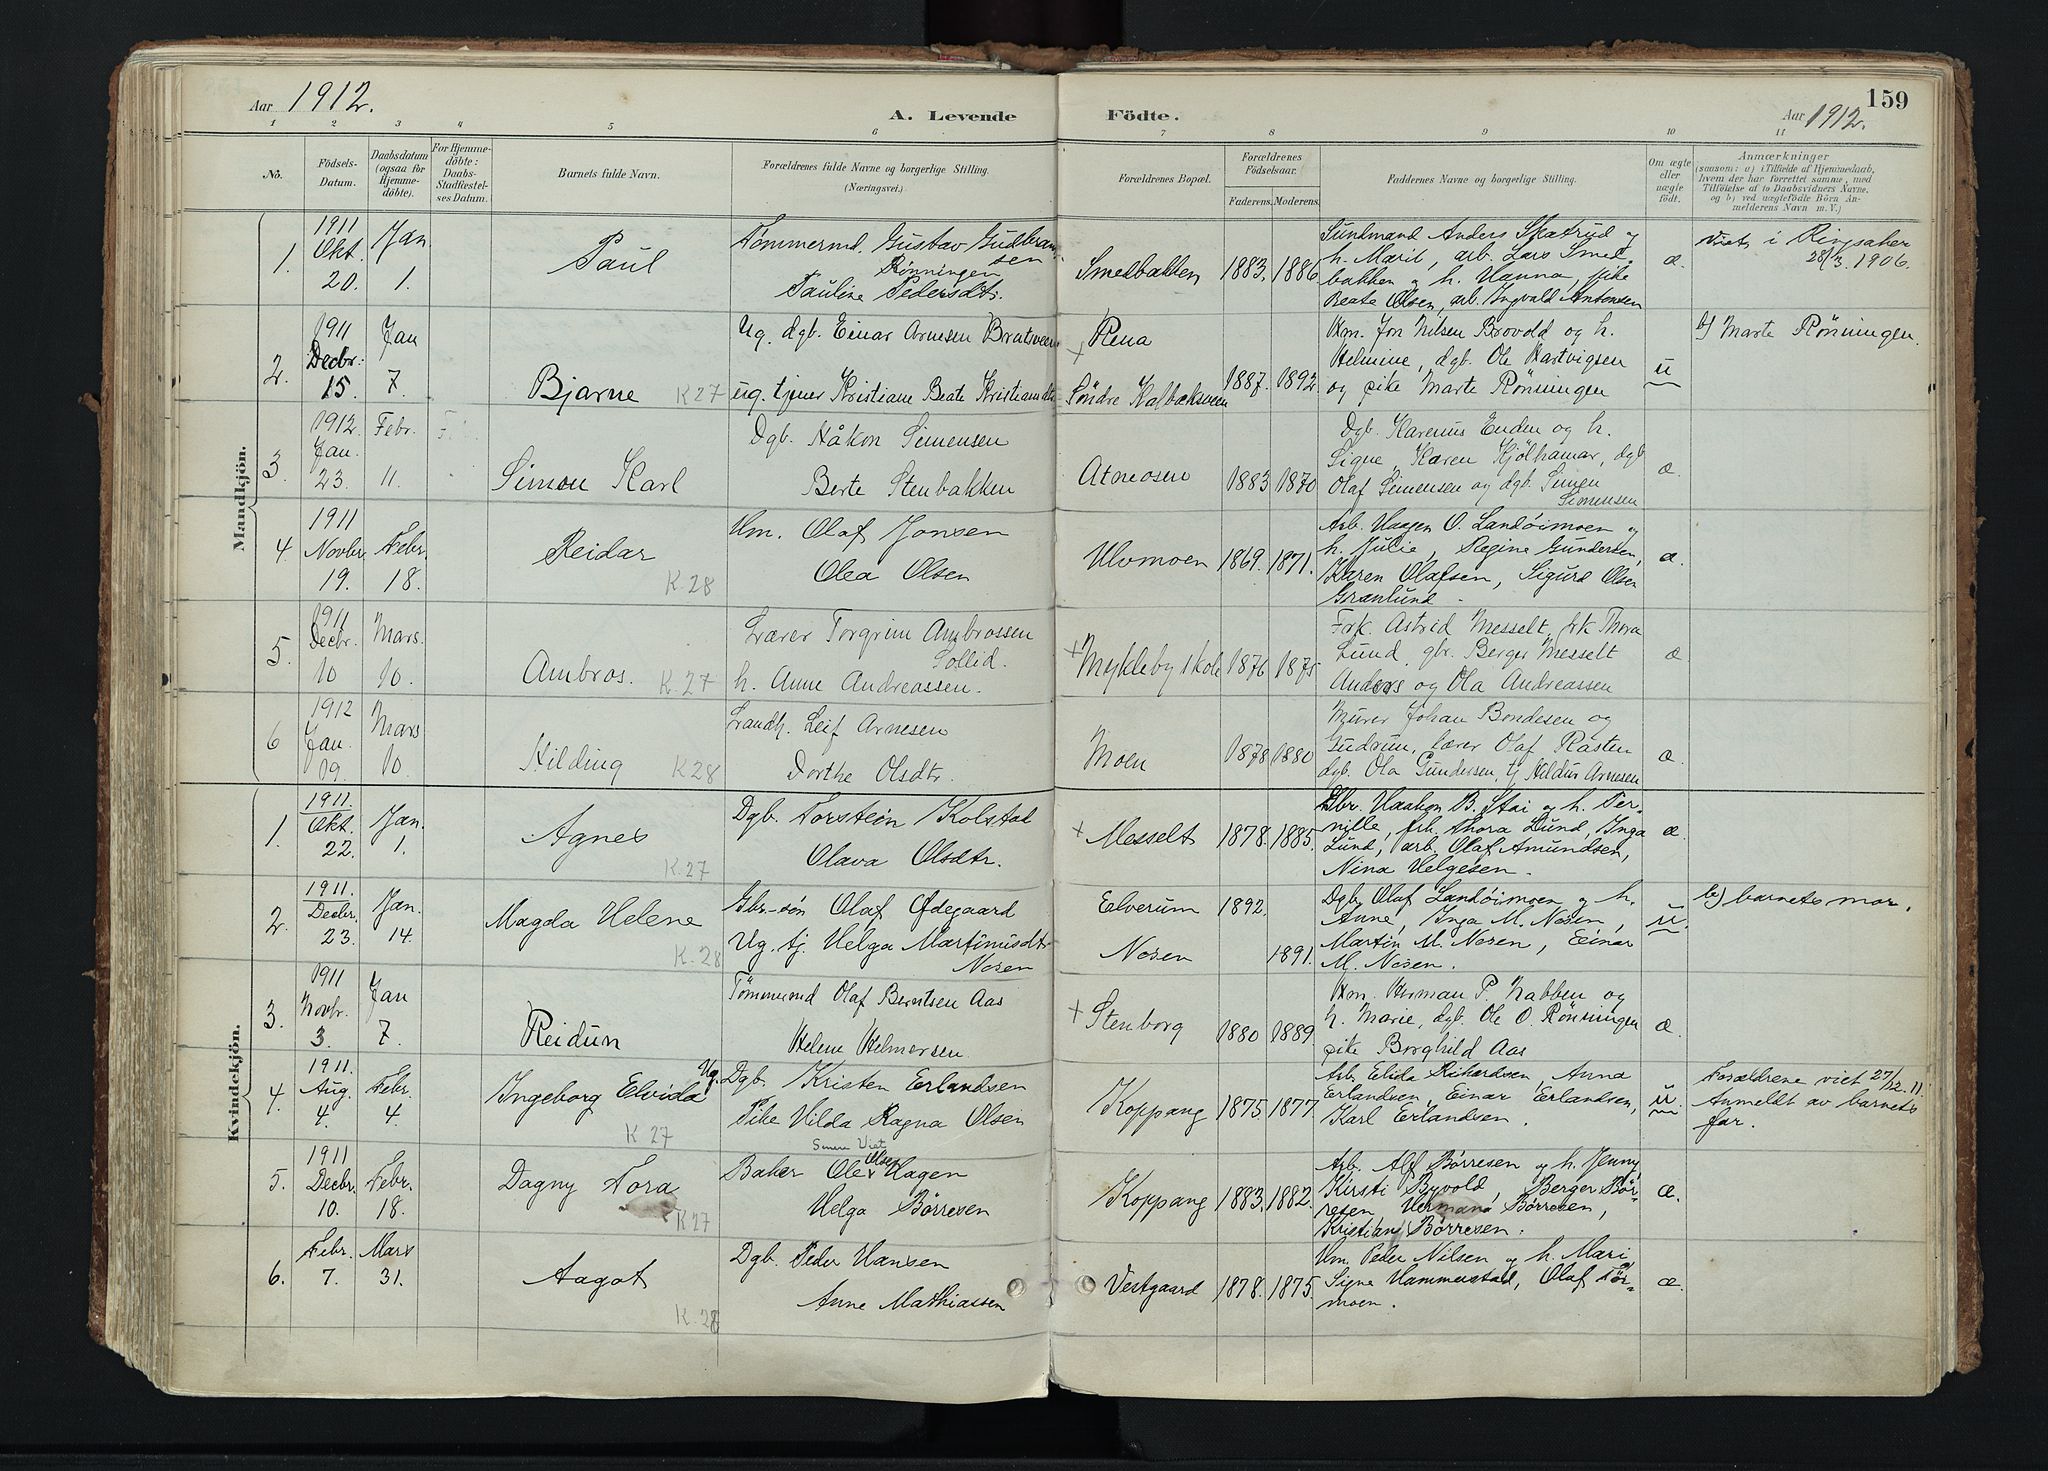 Aar 1912.
A. Levende
Födte.
159
Aar 1912.
1 2 3 4 5 6 7 8 9 10 11
No.
Födsels-Datum.
Daabsdatum (ogsaa for Hjemmedöbte).
For Hjemmedöbte: Daabs-Stadfæstelses Datum.
Barnets fulde Navn.
Forældrenes fulde Navne og borgerlige Stilling. (Næringsvei.)
Forældrenes Bopæl.
Forældrenes Födselsaar.
Faderens. Moderens.
Faddernes Navne og borgerlige Stilling.
Om ægte eller uægte födt.
Anmærkninger
(saasom: a) i Tilfælde af Hjemmedaab, hvem der har forrettet samme, med Tilföielse af to Daabsvidners Navne, og b) ved uægtefödte Börn Anmelderens Navn m. V.)
Mandkjön.
1. 1911 Okt. 20. Jan. 1.
Paul
Tømmermd. Gustav Gudbransen
Rønningen
Pauline Pedersdtr.
Smedbakken 1883. 1886
Sundmand Anders Skatrud og
h. Marit, arb. Lars Smed-
bakken og h. Hanna, pike
Beate Olsen, arb. Ingvald Antonsen
æ.
Viet i Ringsaker
28/3. 1906.
2. 1911 Decbr. 15. Jan 7.
Bjarne K 27
Ug. dgb. Einar Arnesen
ug. tjener Kristiane Beate Kristiansdtr
+ Rena
Søndre 1887. 1892
Hm. Jon Nilsen Brovold og h.
Helmine, dgb. Ole Hartvigsen
og pike Marte Rønningen
u
b) Marte Rønningen.
3. 1912. Jan. 23. Febr. 11.
Simon Karl
Dgb. Håkon Simensen
Berte Stenbakken
Atneosen 1883 1870
Dgb. Karenus Enden og h.
Signe, Karen Kjølhamar, dgb
Olaf Simensen og dgb. Simen
Simensen
æ
4. 1911 Novbr. 19. Febr. 18.
Reidar K. 28
Hm. Olaf Jonsen
Olea Olsen
Ulvmoen 1869. 1871.
Arb. Haagen O. Landøimoen og
h. Julie, Regine Gundersen,
Karen Olafsen, Sigurd Olsen
Grønlund.
æ.
5. 1911 Decbr. 10 Mars. 10.
Ambros. K. 27
Lærer Torgrim Ambrossen
Sollid.
h. Anne Andreassen.
+ Mykleby skole 1876 1875
Frk. Astrid Messelt, frk Thora
Lund, gbr. Berger Messelt
Anders og Ola Andreassen
æ
6 1912 Jan. 09. Mars 10.
Hilding K 28
Landh. Leif Arnesen
Dorthe Olsdtr.
Moen 1878 1880
Murer Johan Bondesen og
Gudrun, lærer Olaf Rasten
dgb. Ola Gundersen, tj Hildur Arnesen
æ.
Kvindekjön.
1. 1911. Okt. 22. Jan. 1.
Agnes K. 27
Dgb. Torstein Kolstad
Olava Olsdtr.
+ Messelt 1878. 1885.
Gbr. Haakon B. Stai og h. Per-
nille, frk. Thora Lund, Inga
Lund, arb. Olaf Amundsen,
Nina Helgesen.
æ.
2. 1911. Decbr. 23. Jan. 14.
Magda Helene K. 28
Gbr-søn Olaf Ødegaard
Ug. tj. Helga Martinusdtr
Nosen
Elverum 1892.
Nosen 1891.
Dgb. Olaf Landøimoen og h.
Anne, Inga M. Nosen,
Martin M. Nosen, Einar
M. Nosen.
u.
b) barnets mor.
3. 1911 Novbr. 3. Jan 7.
Reidun
Tømmermd Olaf Berntsen Aas
Helene Helmersen.
+ Stenborg 1880 1889
Hm. Herman P. Nabben og
h. Marie, dgb. Ole O. Rønningen
pike Borghild Aas
æ.
4. 1911. Aug. 4. Febr. 4.
Ingeborg Elvida K 27
Ug. Dgb. Kristen Erlandsen
Pike Hilda Ragna Olsen
Koppang 1875 1877.
Arb. Elida Rikardsen, Anna
Erlandsen, Einar Erlandsen,
Karl Erlandsen.
u.
Forældrene viet 27/12. 11.
Anmeldt av barnets
far.
5. 1911 Decbr. 10. Febr. 18.
Dagny Tora K 27
Baker Ole Olsen Hagen
Helga Børresen
Koppang 1883. 1882.
Arb. Alf Børresen og h. Jenny,
Kirsti Byvold, Berger Bør-
resen, Herman Børresen,
Kristian Børresen.
æ.
6. Febr. 7. Mars 31.
Aagot K. 28
Dgb. Peder Hansen
Anne Mathiassen
Vestgaard 1878. 1875.
Hm. Peder Nilsen og h. Mari
Signe Hammerstad, Olaf Tør-
moen.
æ.